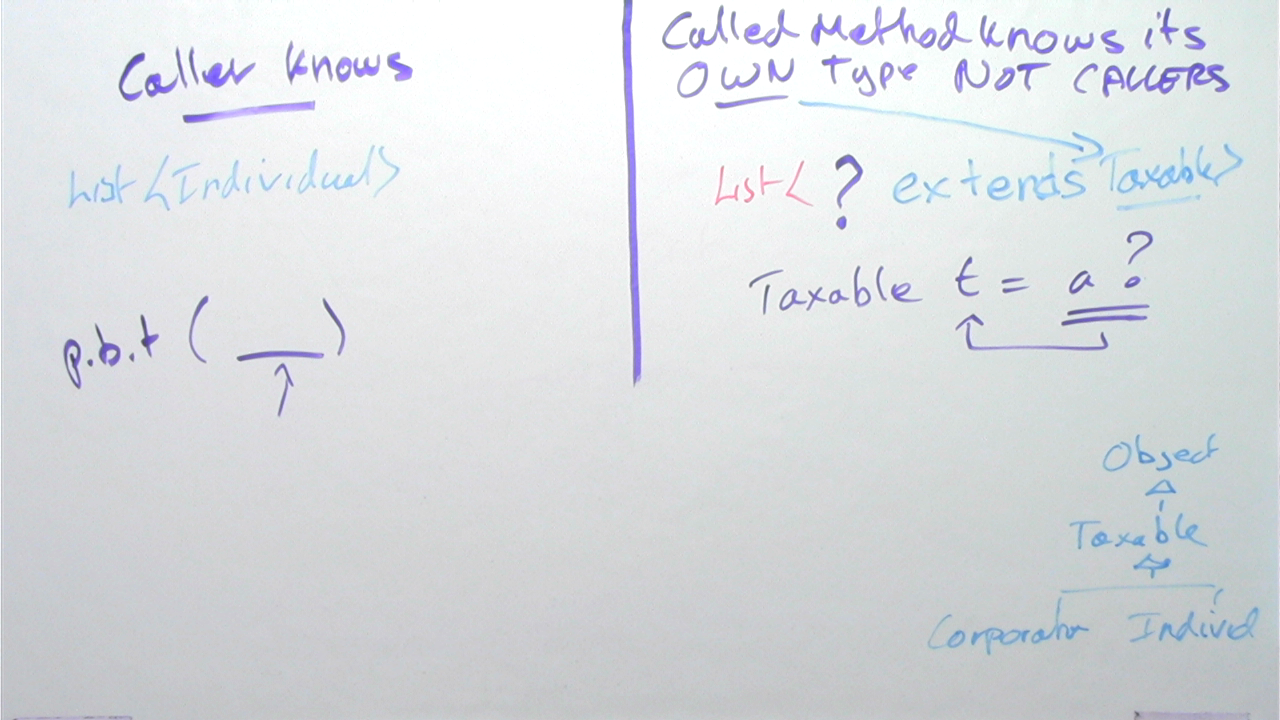 Caller knows
List <Individual>
p.b.t ( __ )
Called Method knows its
OWN type NOT CALLERS
List < ? extends Taxable>
Taxable t = a ?
Object
Taxable
Corporatn Individ